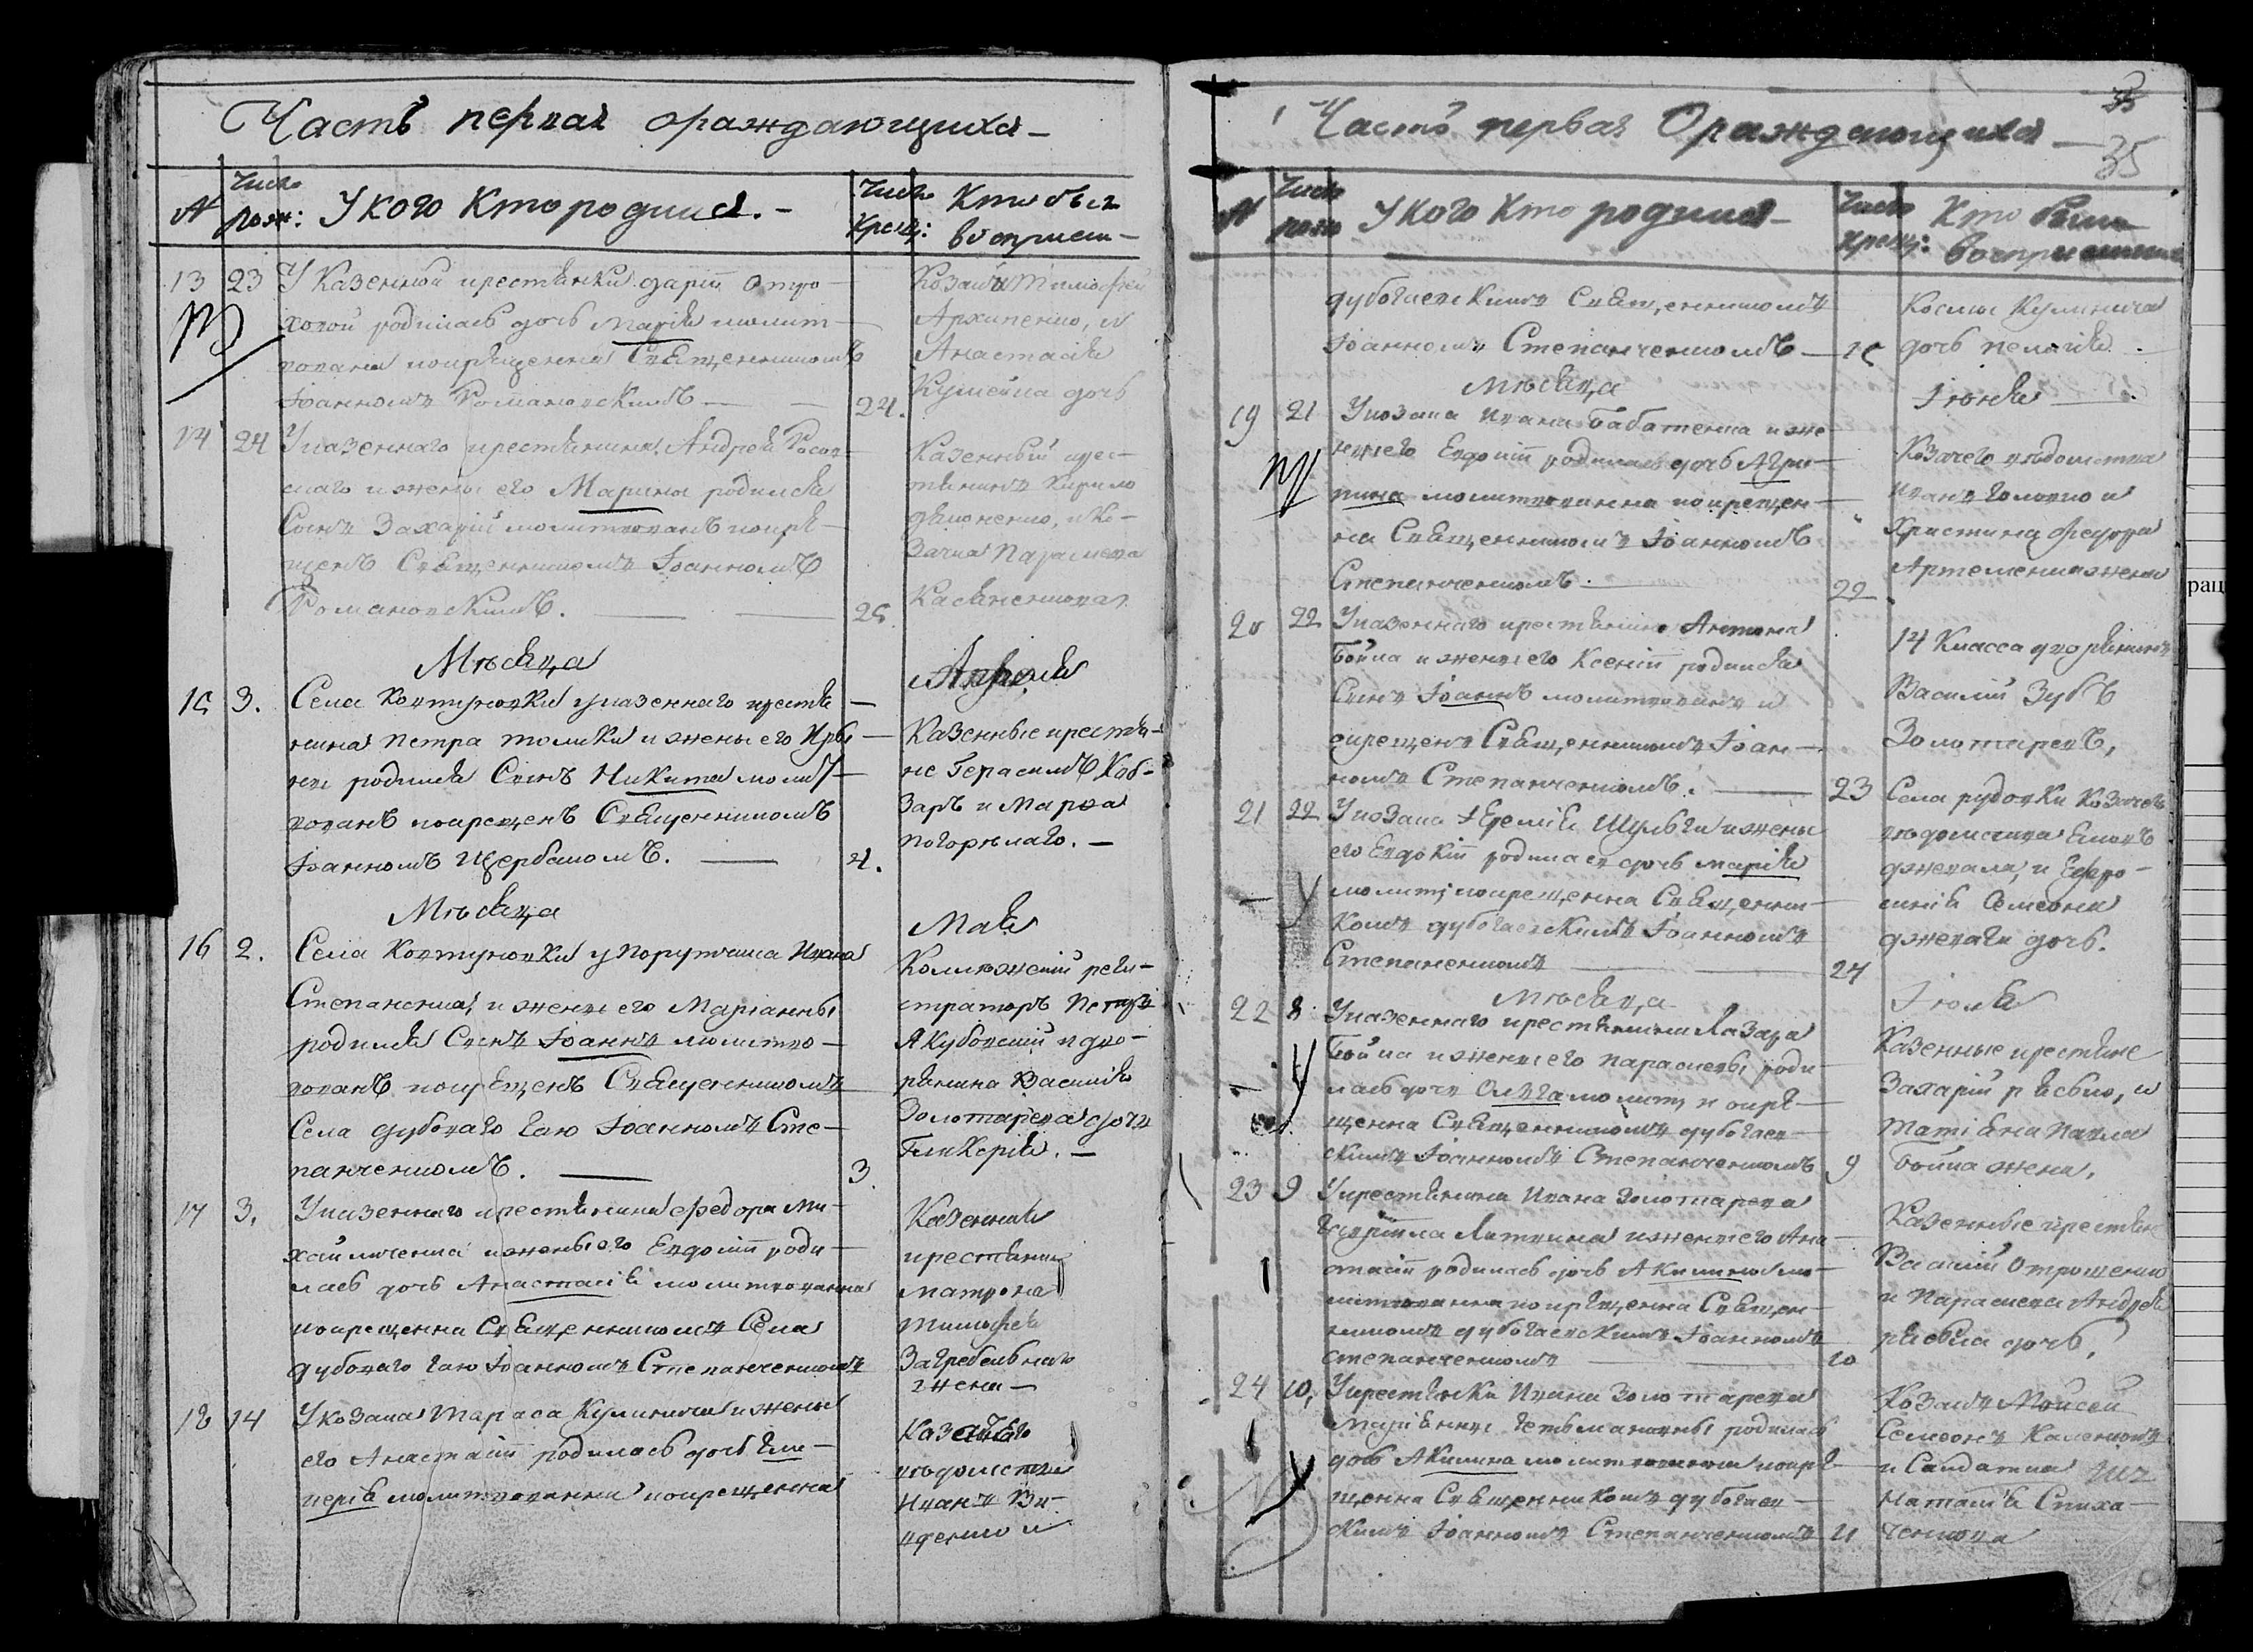 Часть первая ораждающихся
№ Число рож: У кого Кто родился. Число Крещ: Кто был восприем
13 23 У Казенной крестьянки дарїи Отро
ховой родилась дочь Марія молит
вована и окрѣщенна Священникомъ
Іоанномъ Романовскимъ 24.
Козакъ Тимофей
Архипенко, и
Анастасія
дочь
14 24 У казеннаго крестьянина Андрея
скаго и жены его Марины родился
Сынъ Захарїй молитвованъ и окрѣ
щенъ Священникомъ Іоанномъ
Романовскимъ. 25
Казенный крес
тьянинъ Кирило
и Ко
зачка Параскева
Касяненкова
Мѣсяца Апреля
15 3. Села Ковтуновки у казеннаго крестья
нина Петра толики и жены его Ири
ны родился Сынъ Никита молит
вованъ и окрещенъ Священникомъ
Іоанномъ Щербакомъ. 4.
Казенные крестья
не Герасимъ Коб
заръ и Марѳа
погорѣлаго.
Мѣсяца Мая
16 2. Села Ковтуновки у Порутчика Ивана
Степаненка, и жены его Маріанны
родился Сынъ Іоаннъ молитво
вованъ и окрѣщенъ Священникомъ
Села дубоваго гаю Іоанномъ Сте
панченкомъ. 3.
Коллѣжскій реги
страторъ Петръ
Якубовскій и дво
рянина Василія
Золотарева дочь
Гликерія.
17 3. У казеннаго крестьянина Федора Ми
хайличенка и жены его Евдокіи роди
лась дочь Анастасія молитвованна
и окрещенна Священникомъ Села
дубоваго гаю Іоанномъ Степанченкомъ
Казенная
крестьянка
матрона
тимофея
Загребельнаго
жена
18 14 У козака Тараса Кулинича и жены
его Анастасіи родилась дочь Гли
керія молитвованна и окрещенна
Козачего
вѣдомства
Иванъ
и
Часть первая Ораждающихся 35
№ Число рож У кого Кто родился Число крещ: Кто были восприемники
дубогаевскимъ Священникомъ
Іоанномъ Степанченкомъ 15
Космы Кулинича
дочь пелагія
Мѣсяца Іюня
19 21 У козака Ивана Бабатенка и же
ны его Евдокіи родилась дочь Агри
пина молитвованна и окрещен
на Священникомъ Іоанномъ
Степанченкомъ. 22
Козачего вѣдомства
Иванъ Головко и
Христина Федора
Артеменка жена
20 22 У казеннаго крестьянина Антона
Бойка и жены его Ксеніи родился
Сынъ Іоаннъ молитвованъ и
окрещенъ Священникомъ Іоан
номъ Степанченкомъ. 23
14 Класса дворянинъ
Василій Зубъ
Золотаревъ,
21 22 У козака Іеремія Шульги и жены
его Евдокіи родилась дочь марія
молит: и окрещенна Священни
комъ дубогаевскимъ Іоанномъ
Степаненкомъ 24
Села рудовки Козачего
вѣдомства
джевала, и Евфро
синія Семеона
джевали дочь.
Мѣсяца Іюля
22 8 У казеннаго крестьянина Лазара
Бойка и жены его параскевы роди
лась дочь Олгга молит: и окрѣ
щенна Священникомъ дубогаев
скимъ Іоанномъ Степанченкомъ 9
Казенные крестьяне
Захарій рябко, и
Татіяна Павла
Бойка жена.
23 9 У крестьянина Ивана Золотарева
Кирилла Литвина и жены его Ана
стасіи родилась дочь Акилина мо
литвованна и окрѣщенна Священ
никомъ дубогаевскимъ Іоанномъ
степанченкомъ 10
Казенные крестьяне
Василій Отрошенко
и Параскева Андрея
рябка дочь,
24 10, У крестьянки Ивана Золотарева
Маріянны Гетьмановны родилась
дочь Акилина молитвованна и окрѣ
щенна Священникомъ дубогаев
скимъ Іоанномъ Степанченкомъ 11
Козакъ Мойсей
Семеонъ
и Салдатка
Наталія Стиха
ченкова